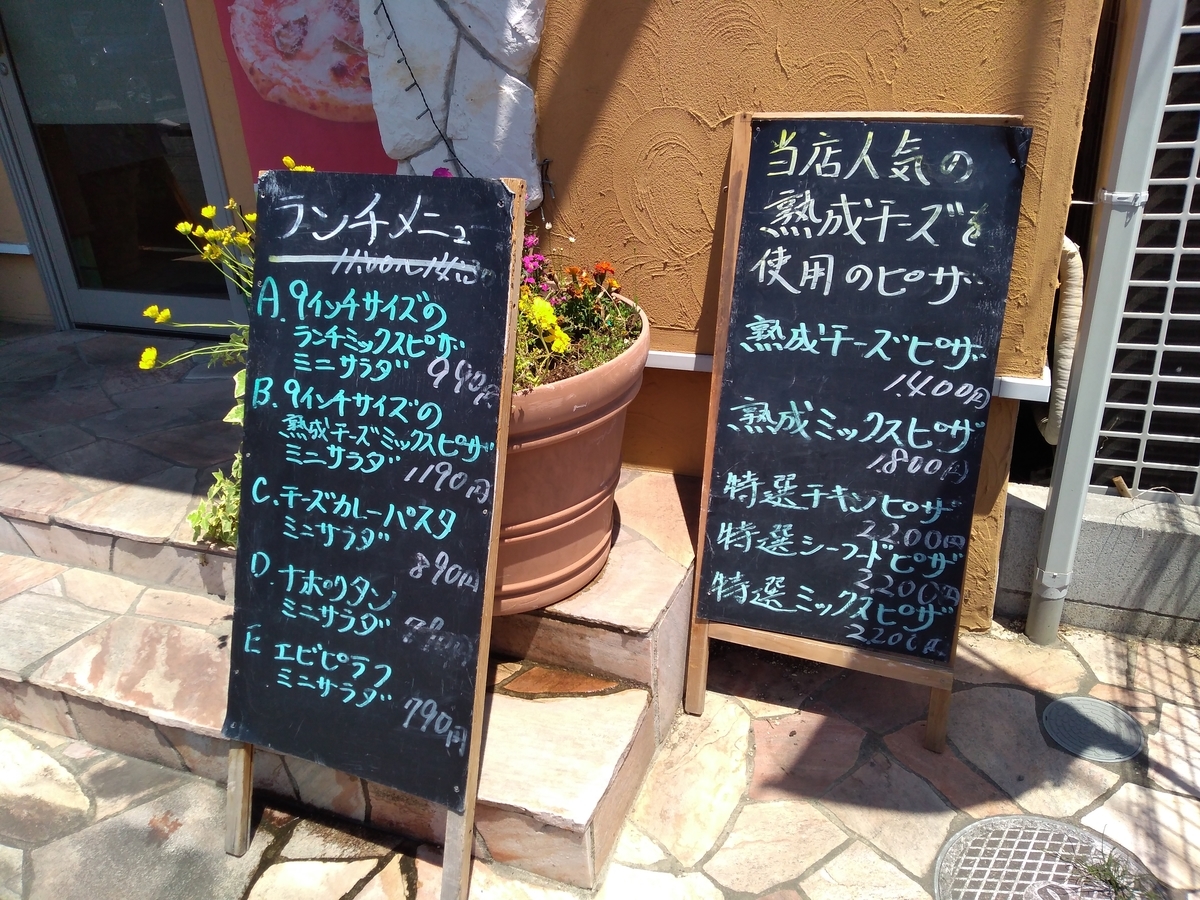 ランチメニュー
11:00〜14:00
A. 9インチサイズの
ランチミックスピザ
ミニサラダ 990円
B. 9インチサイズの
熟成チーズミックスピザ
ミニサラダ 1190円
C. チーズカレーパスタ
ミニサラダ
890円
D. ナポリタン
ミニサラダ
E エビピラフ
ミニサラダ
790円
当店人気の
熟成チーズを
使用のピザ
熟成チーズピザ
1.400円
熟成ミックスピザ
1.800円
特選チキンピザ
2.200円
特選シーフードピザ
2.200円
特選ミックスピザ
2.200円